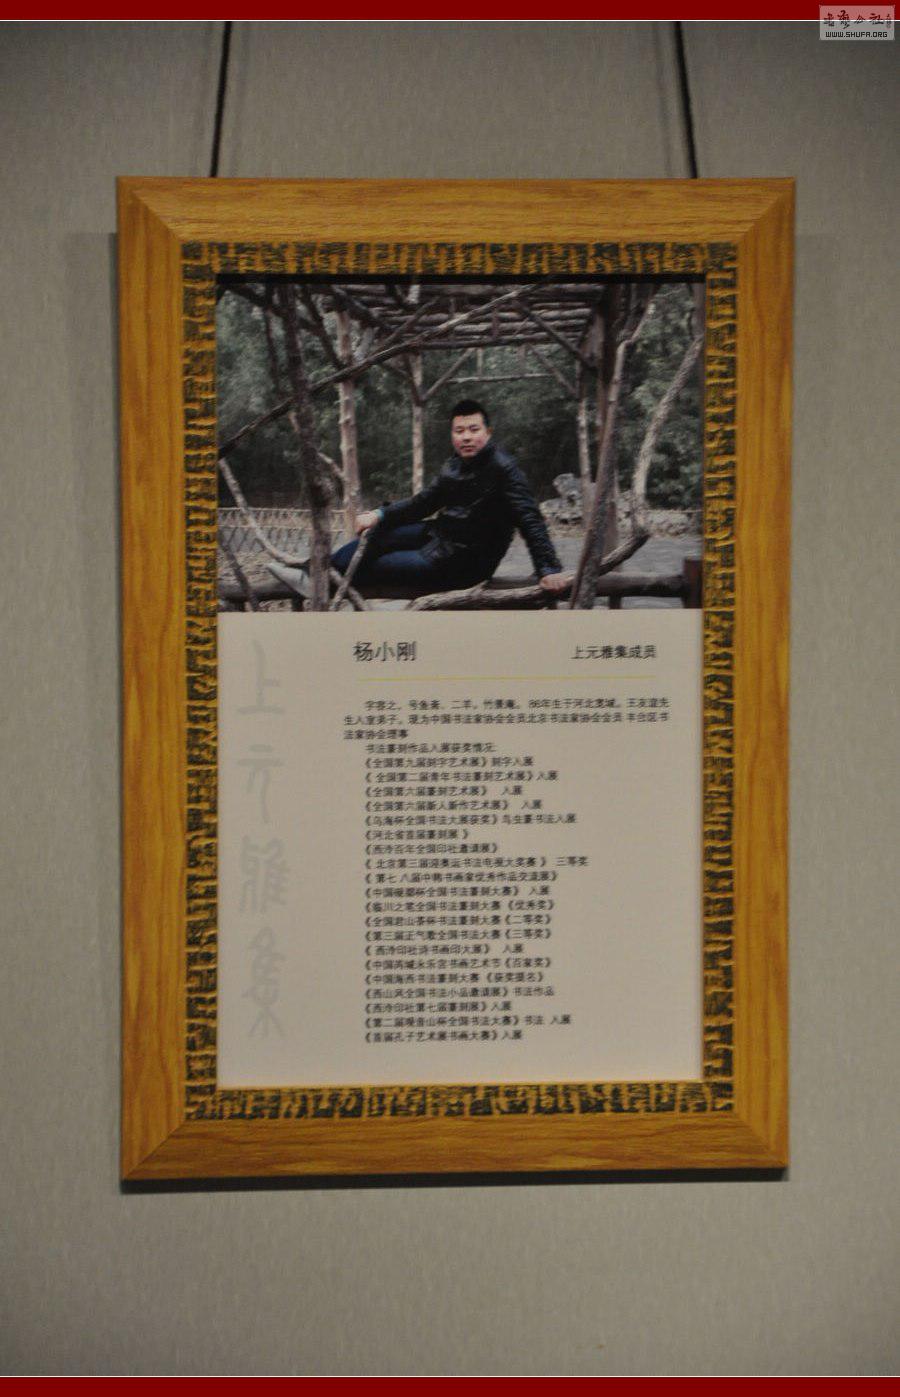 WWW.SHUFA.ORG
杨小刚
上元雅集成员
上元雅集
字容之，号鱼斋、二羊，竹景庵。86年生于河北宽城，王友谊先
生入室弟子，现为中国书法家协会会员北京书法家协会会员 丰台区书
法家协会理事
书法篆刻作品入展获奖情况:
《全国第九届刻字艺术展》刻字入展
《 全国第二届青年书法篆刻艺术展》入展
《全国第六届篆刻艺术展》 入展
《全国第六届新人新作艺术展》 入展
《乌海杯全国书法大展获奖》鸟虫篆书法入展
《河北省首届篆刻展 》
《西泠百年全国印社邀请展》
《 北京第三届迎奥运书法电视大奖赛 》 三等奖
《 第七 八届中韩书画家优秀作品交流展》
《中国 杯全国书法篆刻大赛》 入展
《临川之笔全国书法篆刻大赛《优秀奖》
《全国君山茶杯书法篆刻大赛《二等奖》
《第三届正气歌全国书法大赛《三等奖》
《 西泠印社诗书画印大展》 入展
《中国芮城永乐宫书画艺术节《百家奖》
《中国海西书法篆刻大赛 《获奖提名》
《西山风全国书法小品邀请展》书法作品
《西泠印社第七届篆刻展》入展
《第二届观音山杯全国书法大赛》书法 入展
《首届孔子艺术展书画大赛》入展